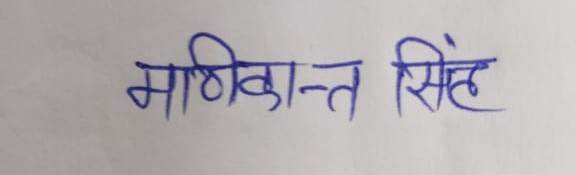 मणिकान्त सिंह